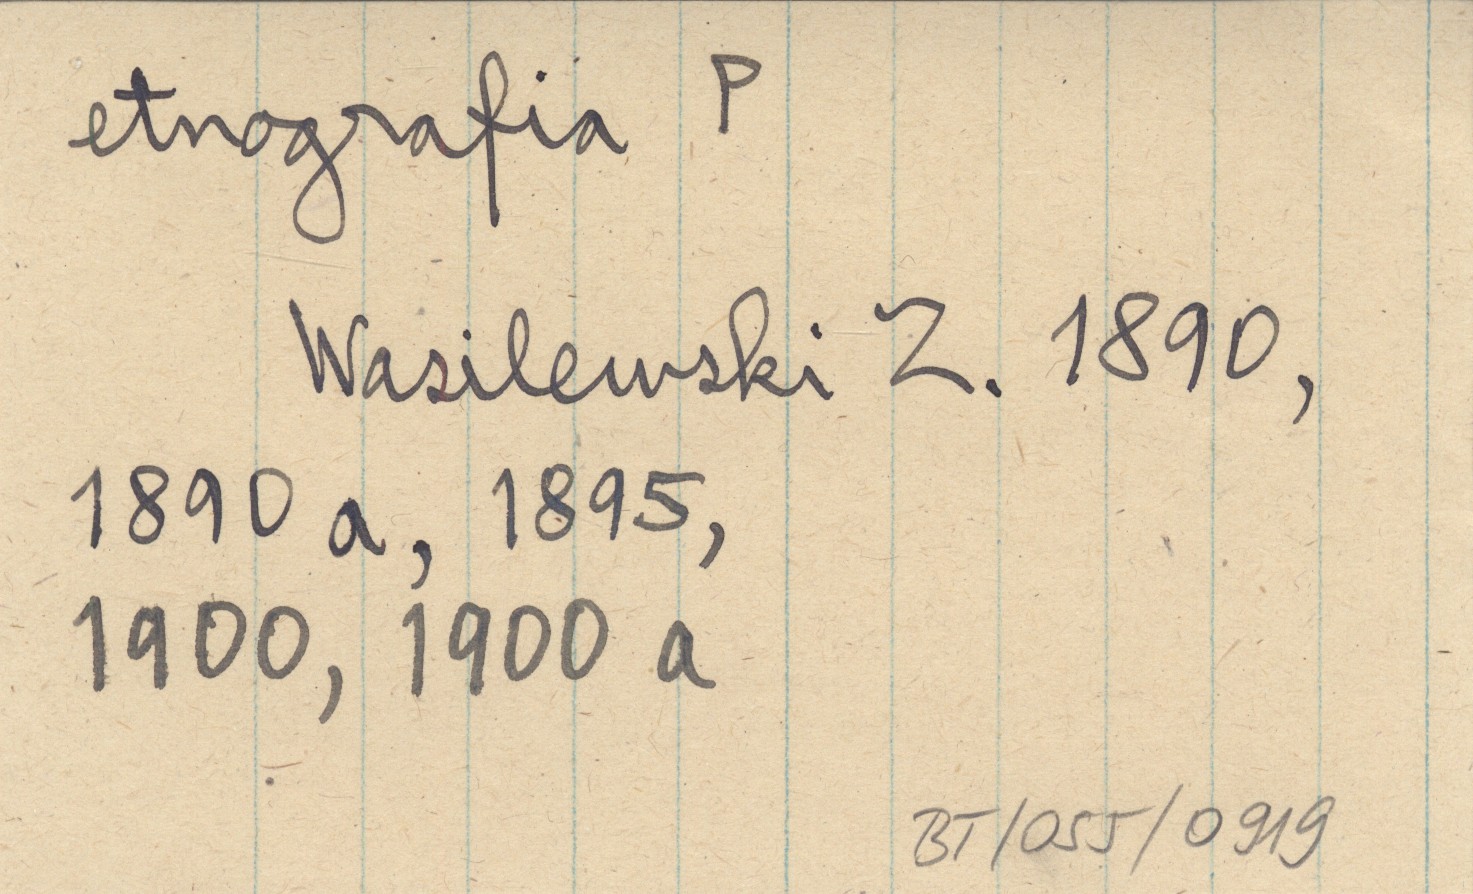 etnografia P
Wasilewski Z. 1890,
1890 a, 1895,
1900, 1900 a
BT/055/0919